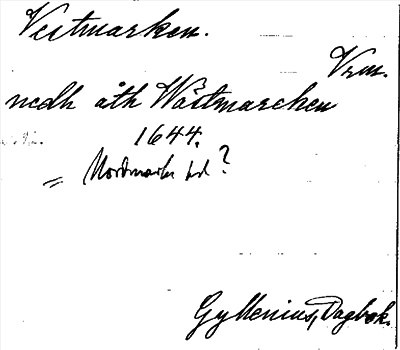 Vestmarken.
Vrm.
nedh åth Wästmarcken
1644.
= Nordmarks hd?
Gyllenius, Dagbok.